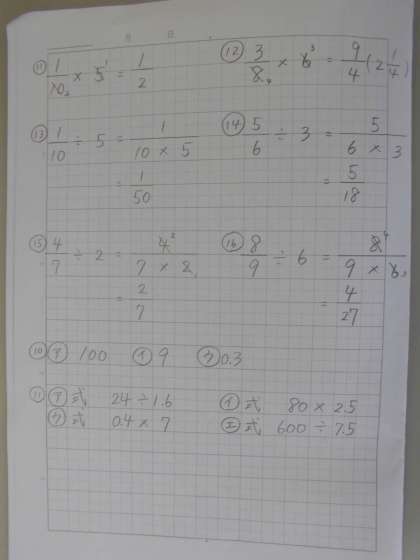 月 日
⑪ 1/10₂ × 5¹ = 1/2 ⑫ 3/8₄ × 6³ = 9/4 (2 1/4)
⑬ 1/10 ÷ 5 = 1/(10 × 5) ⑭ 5/6 ÷ 3 = 5/(6 × 3)
= 1/50 = 5/18
⑮ 4/7 ÷ 2 = 4²/(7 × 2₁) ⑯ 8/9 ÷ 6 = 8⁴/(9 × 6₃)
= 2/7 = 4/27
⑩ ㋐ 100 ㋑ 9 ㋒ 0.3
⑪ ㋐ 式 24 ÷ 1.6 ㋑ 式 80 × 2.5
㋒ 式 0.4 × 7 ㋓ 式 600 ÷ 7.5